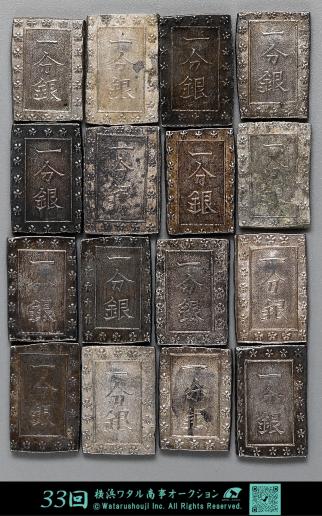 一分銀 一分銀 一分銀 一分銀
一分銀 一分銀 一分銀 一分銀
一分銀 一分銀 一分銀 一分銀
一分銀 一分銀 一分銀 一分銀
33回 横浜ワタル商事オークション
©Watarushouji Inc. All Rights Reserved.